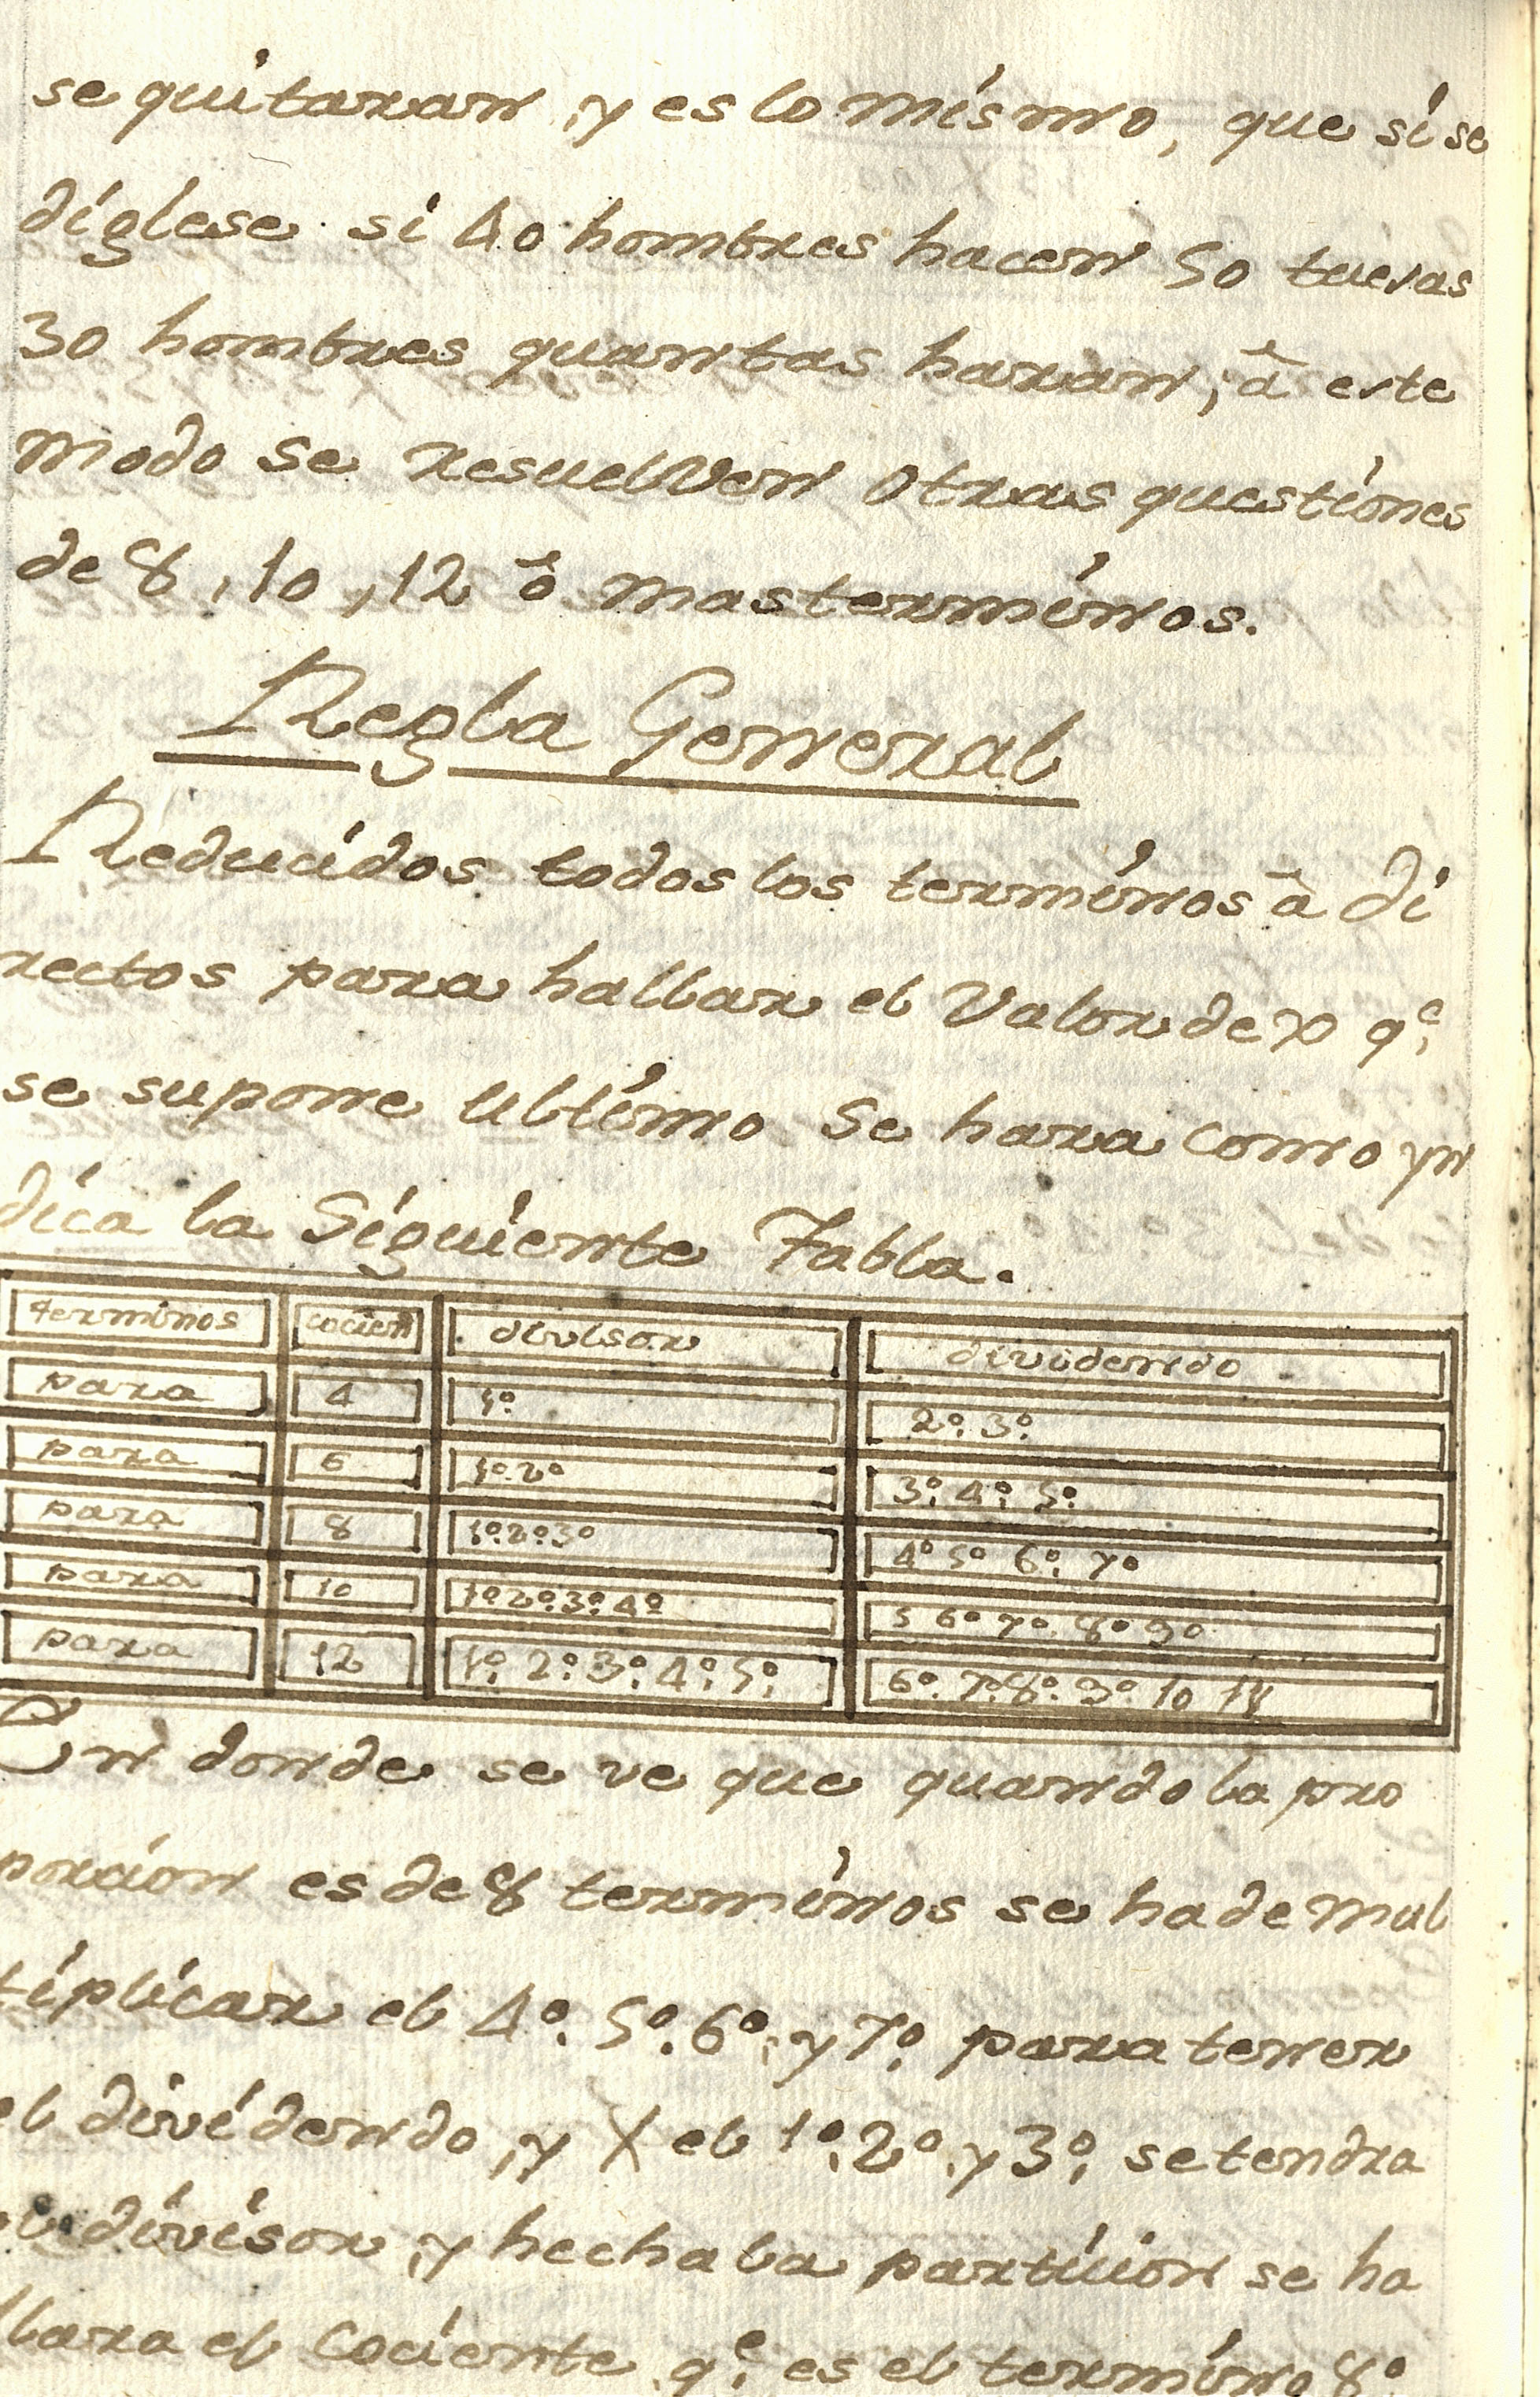 se quitaran, y es lo mismo, que si se
diglese si 40 hombres hacen 50 tuesas
30 hombres quantas haran; à este
modo se resuelven otras questiones
de 8, 10, 12 ò mas terminos.
Regla General
Reducidos todos los terminos à di
rectos para hallar el valor de x q.e
se supone ultimo se hara como yn
dica la Siguiente Tabla.
terminos cocien divisor dividendo
para 4 1º 2º. 3º.
para 6 1º. 2º 3º. 4º. 5º.
para 8 1º. 2º. 3º 4º 5º 6º. 7º
para 10 1º 2º. 3º. 4º 5 6º 7º. 8º 9º
para 12 1º. 2º. 3º. 4º. 5º. 6º. 7º. 8º. 9º. 10 11
En donde se ve que quando la pro
porcion es de 8 terminos se ha de mul
tiplicar el 4º. 5º. 6º. y 7º. para tener
el dividendo, y X el 1º. 2º. y 3º. se tendra
el divisor, y hecha la particion se ha
llara el Cociente q.e es el termino 8º